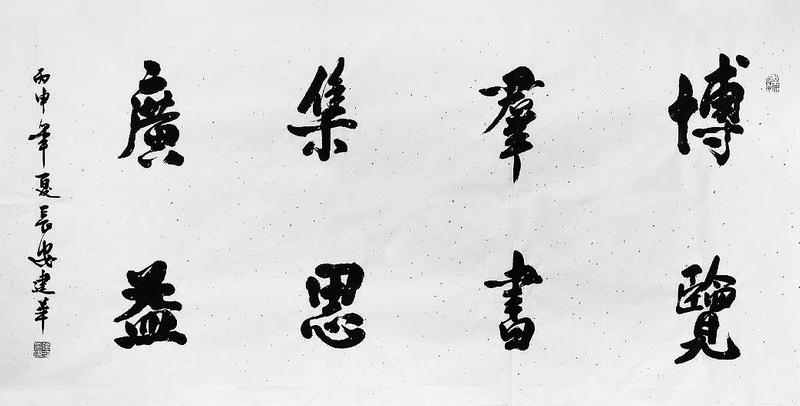 博覽
羣書
集思
廣益
丙申年夏長安建華